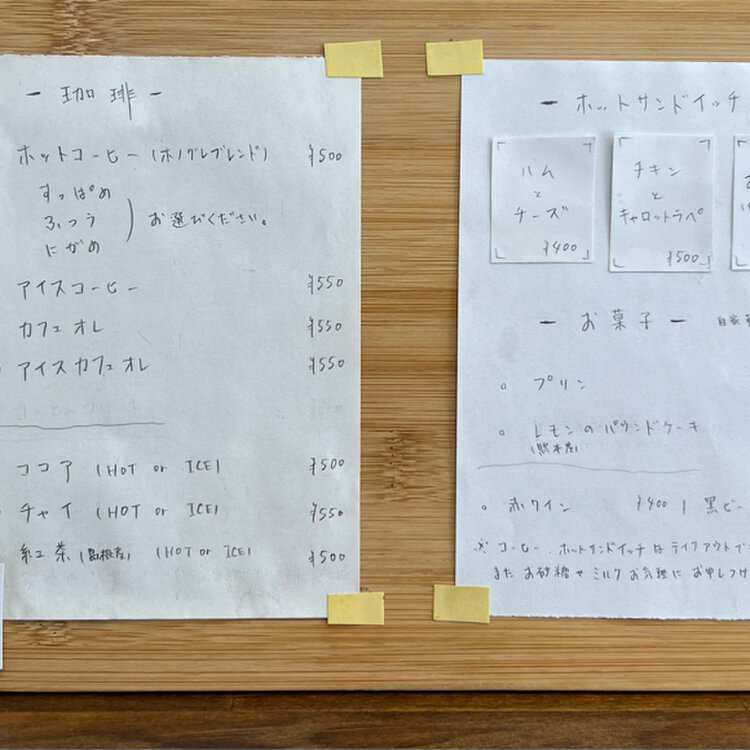 ー 珈琲 ー
ホットコーヒー (ホノグレブレンド) ¥500
すっぱめ
ふつう
にがめ
お選びください。
アイスコーヒー ¥550
カフェオレ ¥550
アイスカフェオレ ¥550
ココア (HOT or ICE) ¥500
チャイ (HOT or ICE) ¥550
紅茶 (島根産) (HOT or ICE) ¥500
ー ホットサンドイッチ
ハム
と
チーズ
¥400
チキン
と
キャロットラペ
¥500
ー お菓子 ー 自家
。 プリン
。 レモンのパウンドケーキ
(熊本産)
。 赤ワイン ¥400 / 黒ビー
※ コーヒー、ホットサンドイッチはテイクアウトで
また お砂糖やミルク お気軽に お申しつけ